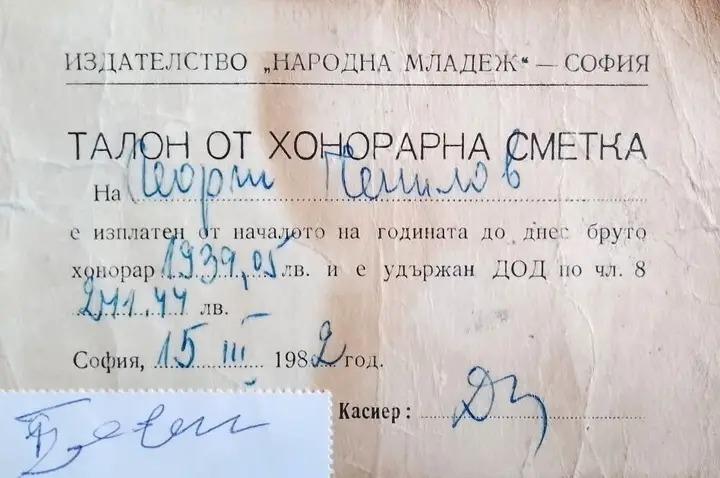 ИЗДАТЕЛСТВО „НАРОДНА МЛАДЕЖ“ — СОФИЯ
ТАЛОН ОТ ХОНОРАРНА СМЕТКА
На Георги
е изплатен от началото на годината до днес бруто
хонорар 1939,05 лв. и е удържан ДОД по чл. 8
лв.
София, 15 III 1982 год.
Касиер: